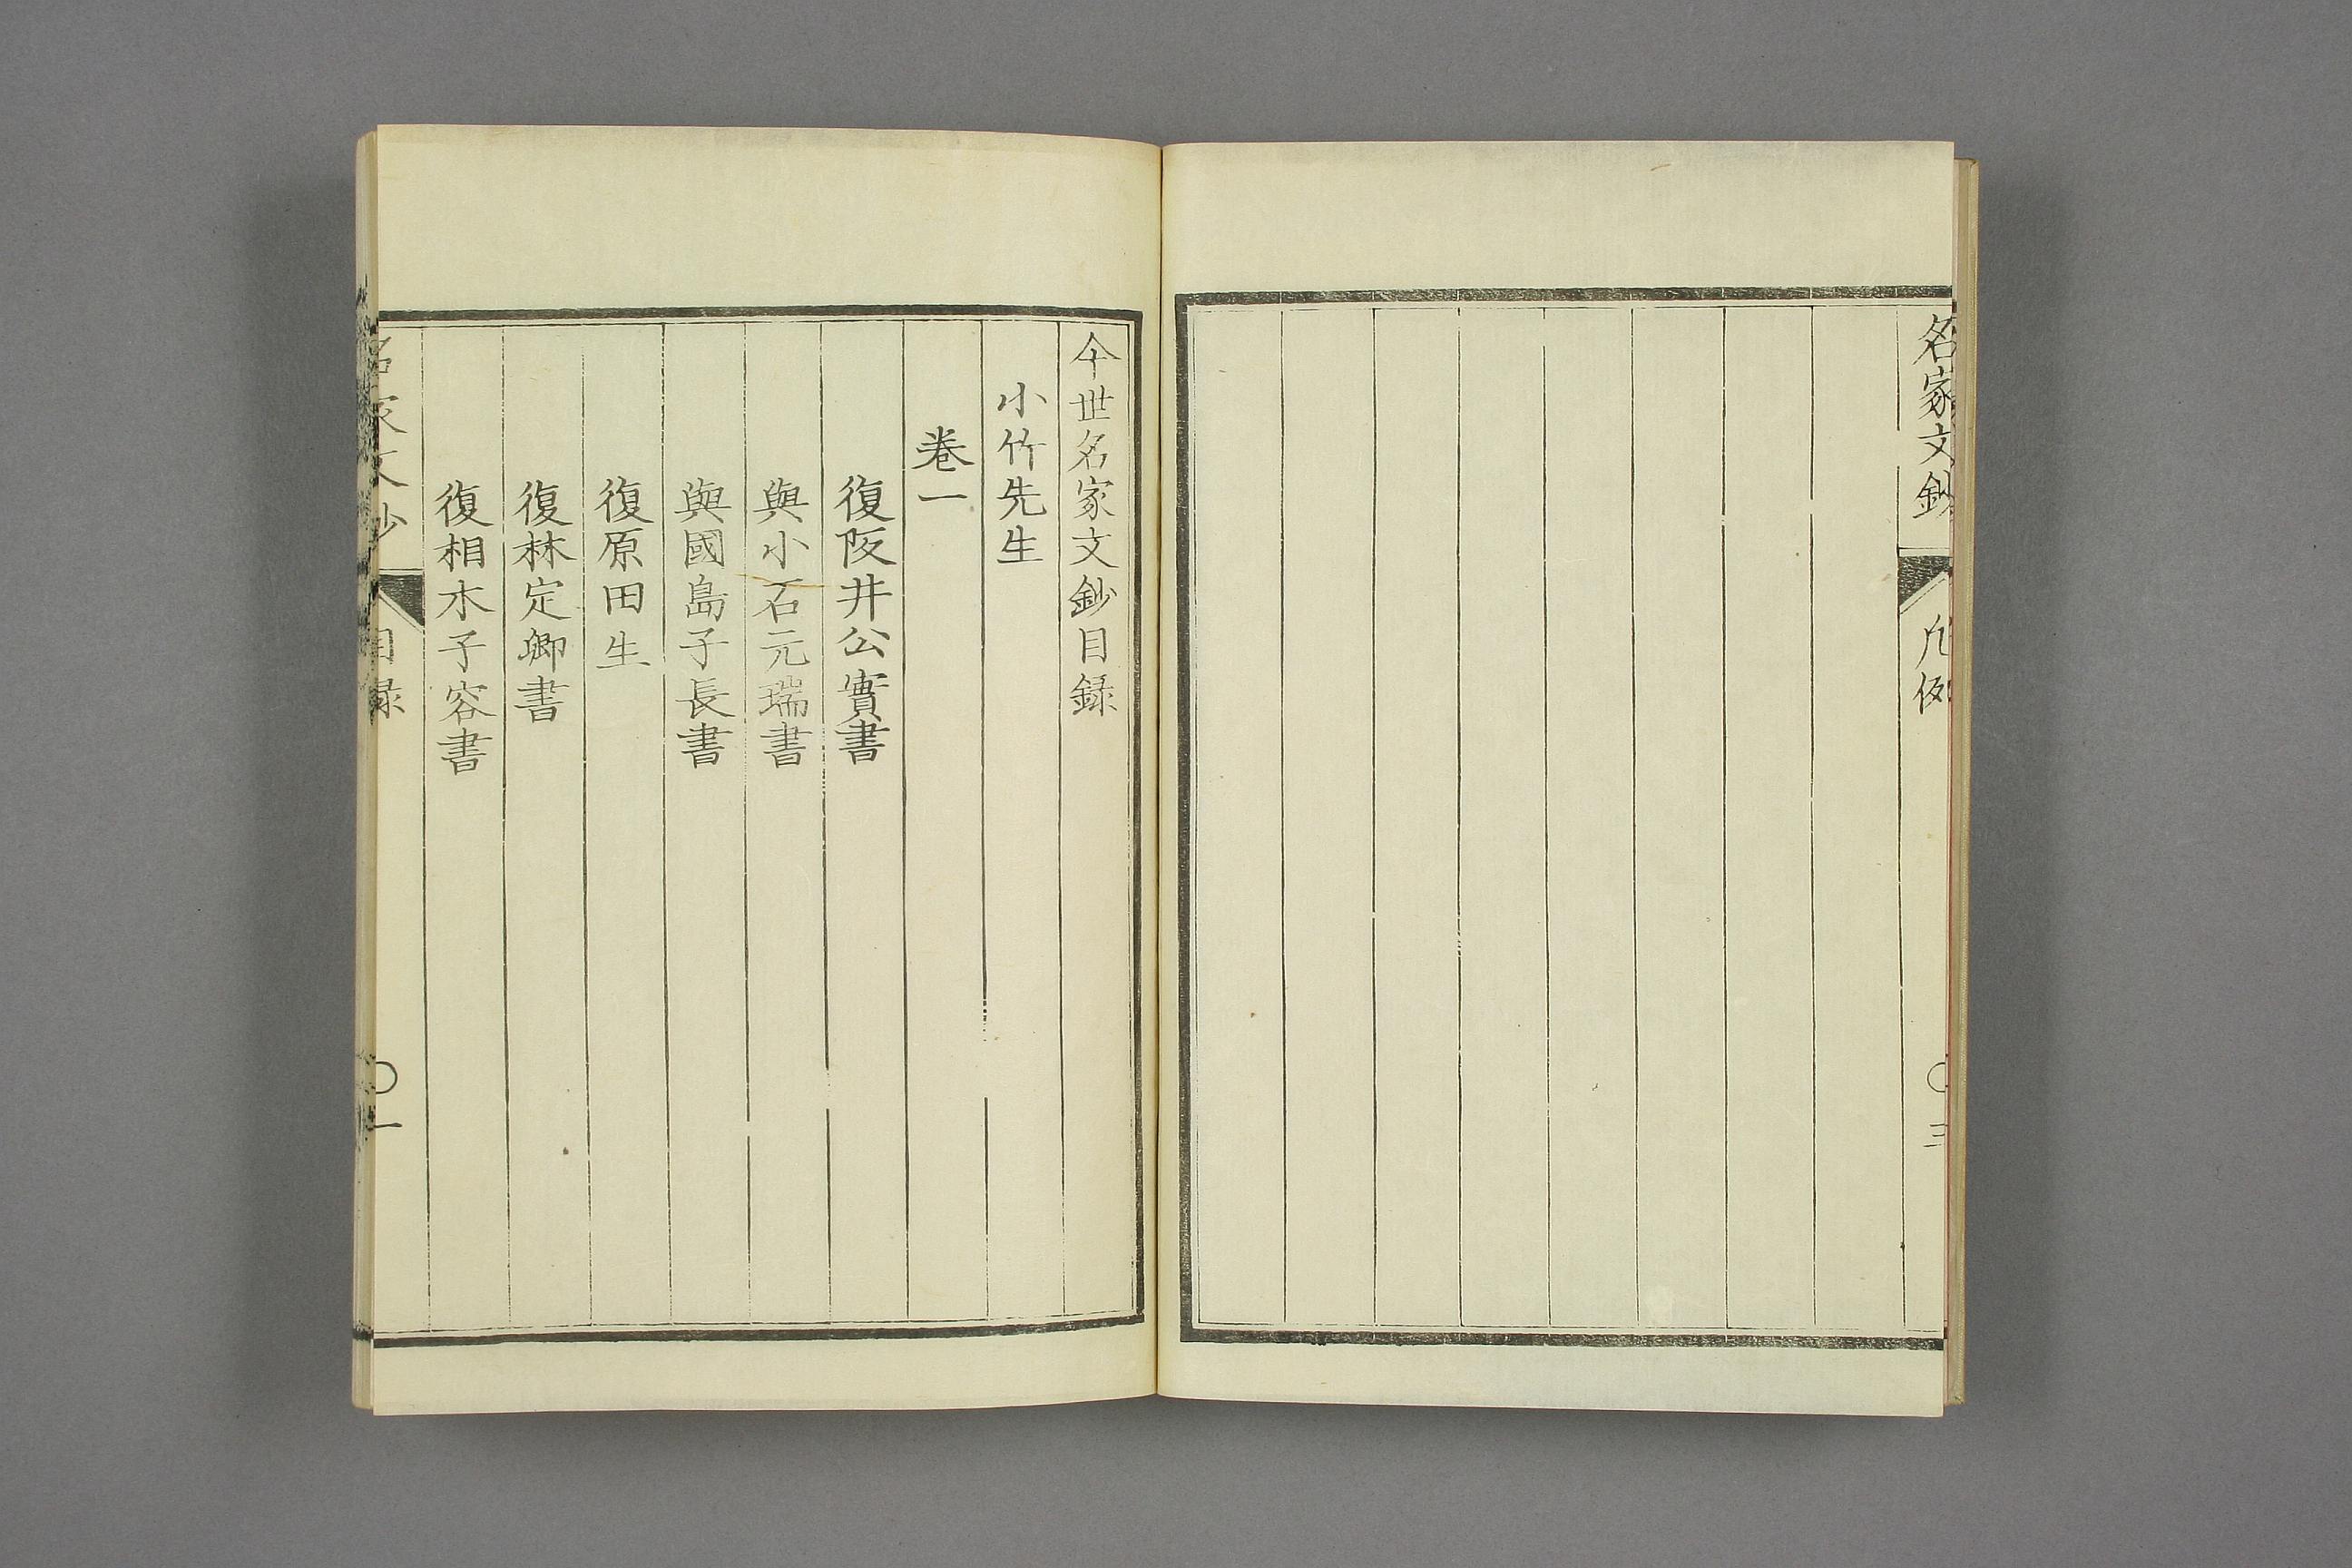 名家文鈔
凡例
三
今世名家文鈔目録
小竹先生
卷一
復阪井公實書
與小石元瑞書
與國島子長書
復原田生
復林定卿書
復相木子容書
名家文鈔
目録
一